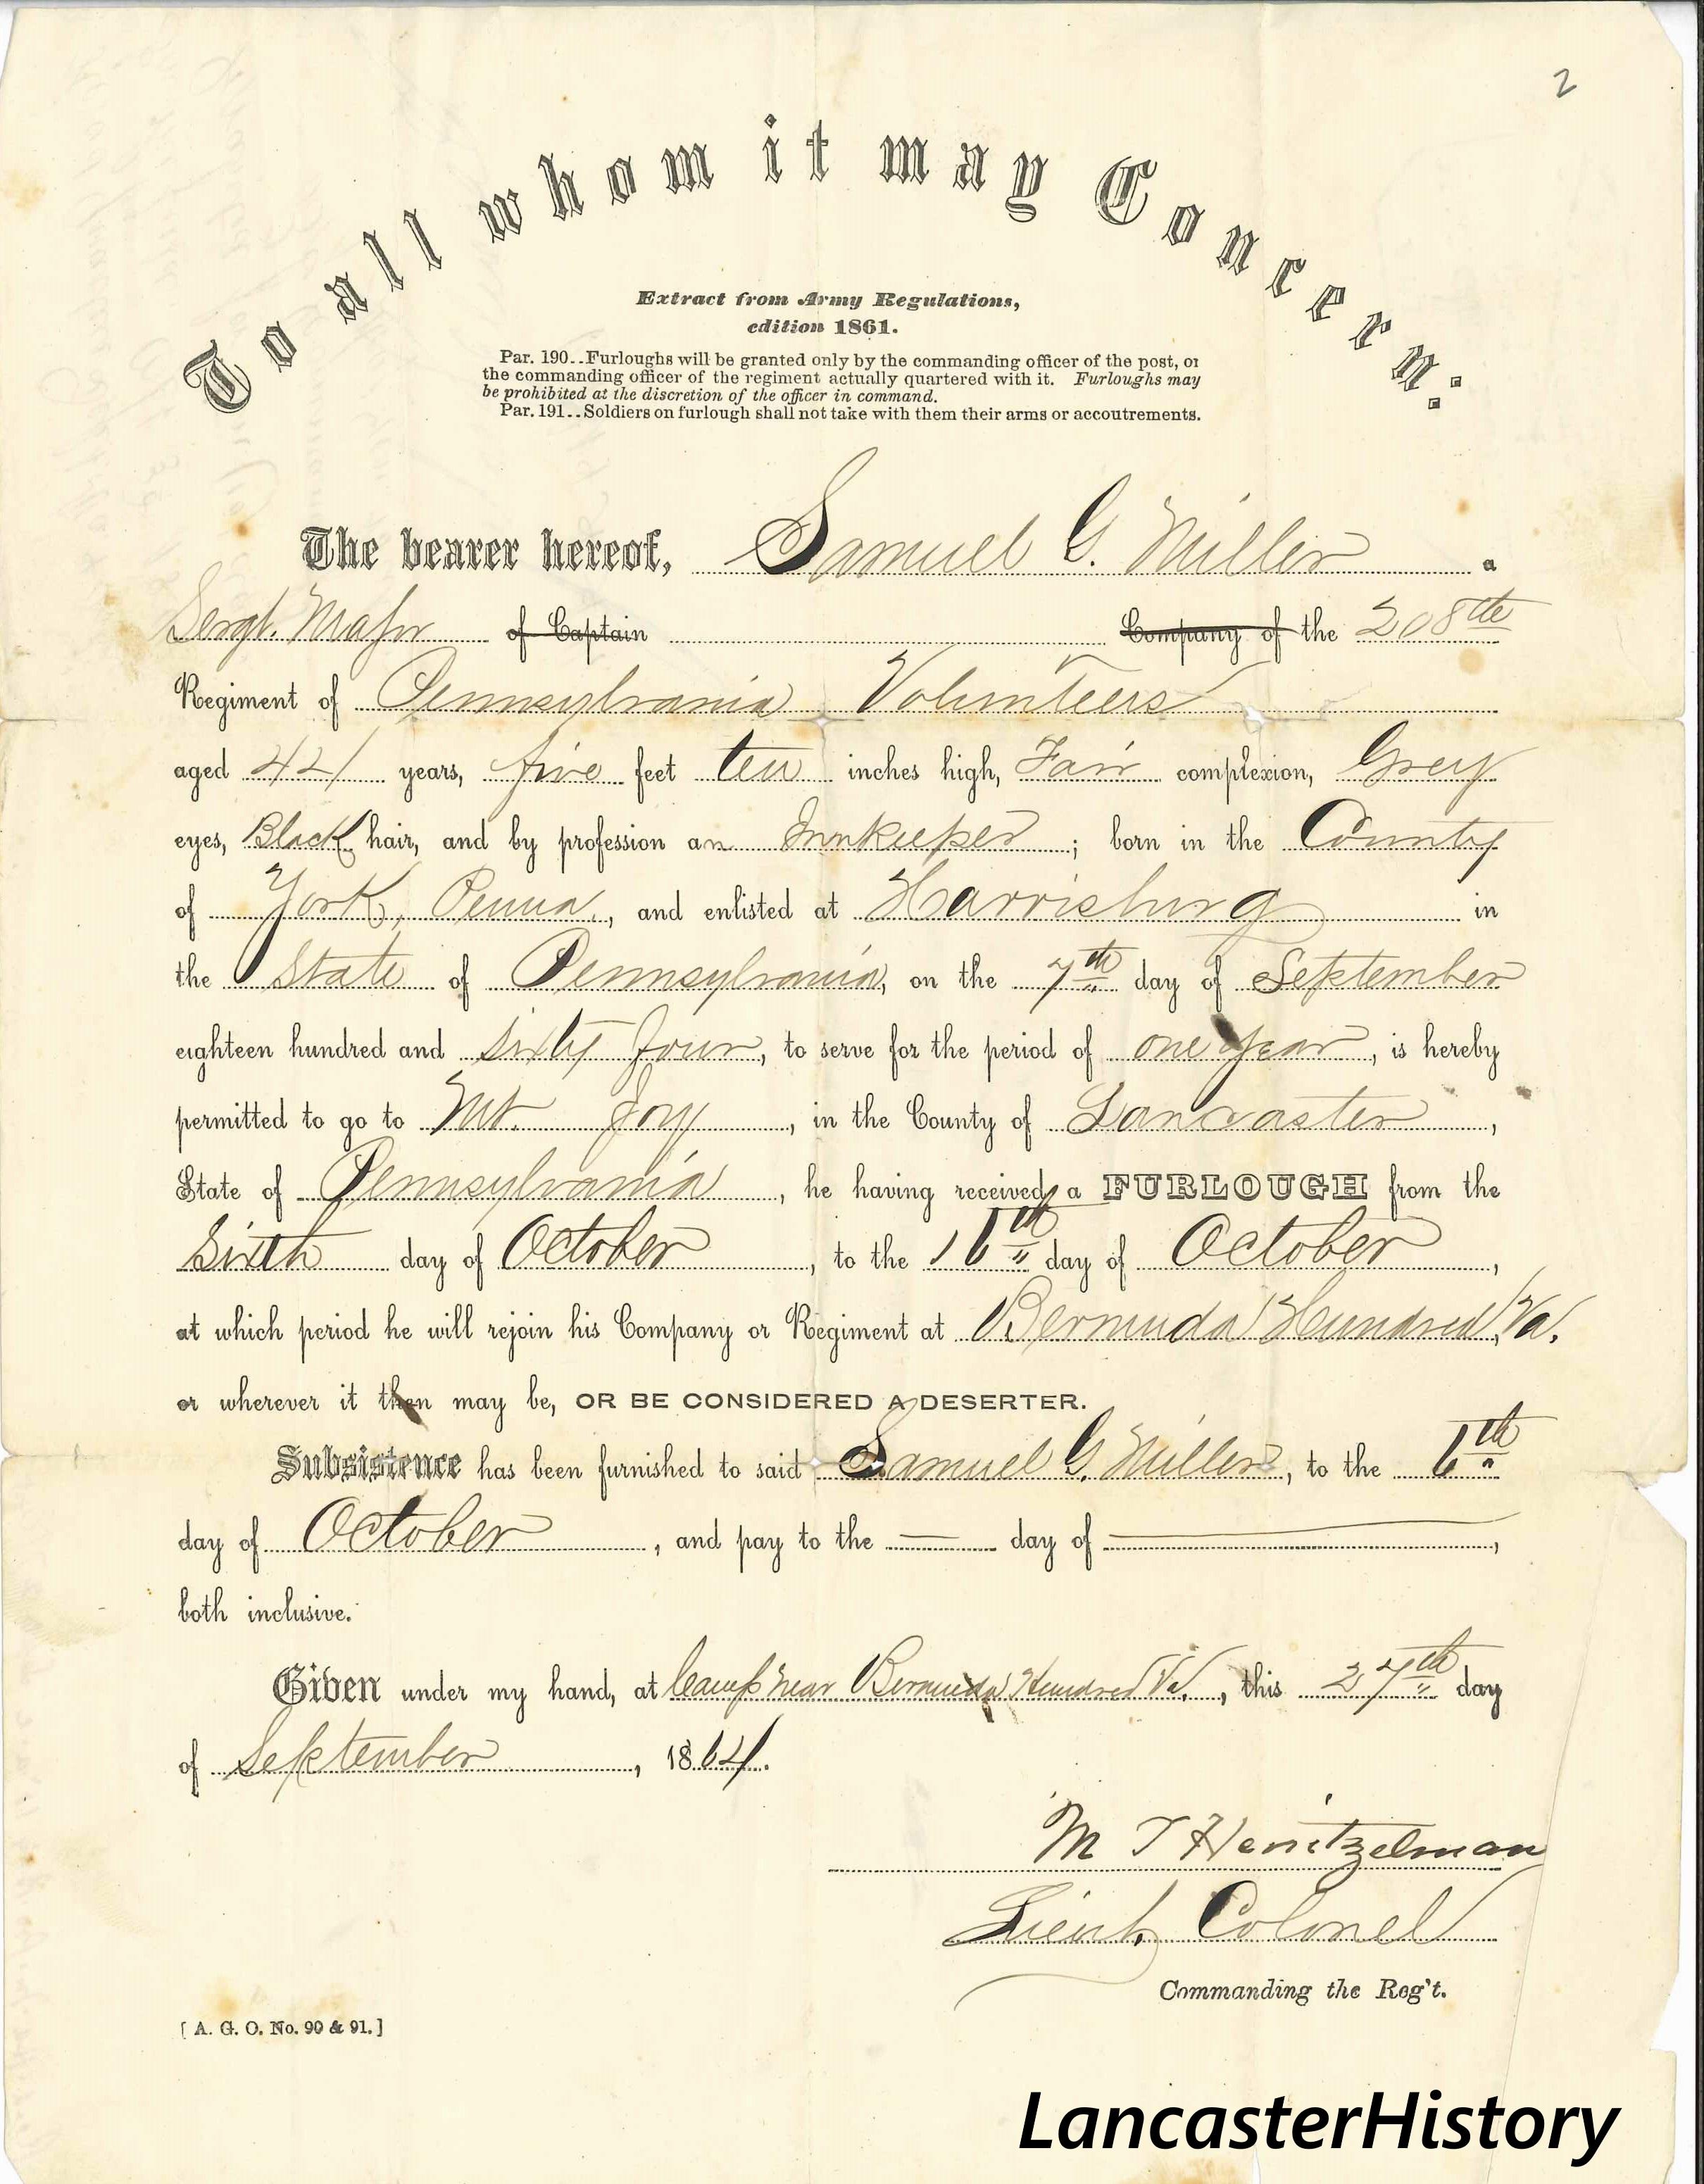 2
To all whom it may Concern:
Extract from Army Regulations,
edition 1861.
Par. 190..Furloughs will be granted only by the commanding officer of the post, or
the commanding officer of the regiment actually quartered with it. Furloughs may
be prohibited at the discretion of the officer in command.
Par. 191..Soldiers on furlough shall not take with them their arms or accoutrements.
The bearer hereof, Samuel G. Miller a
Sergt. Major of Captain Company of the 208th
Regiment of Pennsylvania Volunteers
aged 42 years, five feet ten inches high, Fair complexion, Grey
eyes, Black hair, and by profession an Innkeeper; born in the County
of York, Penna., and enlisted at Harrisburg in
the State of Pennsylvania, on the 7th day of September
eighteen hundred and sixty four, to serve for the period of one year, is hereby
permitted to go to Mt. Joy, in the County of Lancaster,
State of Pennsylvania, he having received a FURLOUGH from the
Sixth day of October, to the 16th day of October,
at which period he will rejoin his Company or Regiment at Bermuda Hundred, Va.
or wherever it then may be, OR BE CONSIDERED A DESERTER.
Subsistence has been furnished to said Samuel G. Miller, to the 6th
day of October, and pay to the — day of —,
both inclusive.
Given under my hand, at Camp near Bermuda Hundred Va., this 27th day
of September, 1864.
M T Heintzelman
Lieut. Colonel
Commanding the Reg't.
[A. G. O. No. 90 & 91.]
LancasterHistory